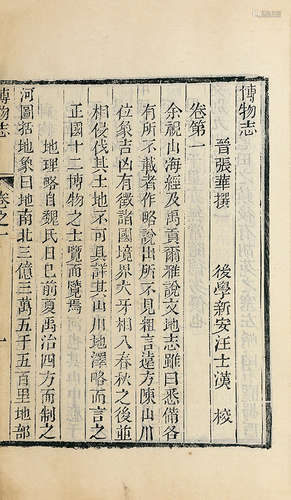 博物志
卷第一
晉張華撰　後學新安汪士漢　校
余視山海經及禹貢爾雅說文地志雖曰悉備各
有所不載者作略說出所不見粗言遠方陳山川
位象吉凶有徵諸國境界犬牙相入春秋之後並
相侵伐其土地不可具詳其山川地澤略而言之
正國十二博物之士覽而鑒焉
地理略自魏氏曰巳前夏禹治四方而制之
河圖括地象曰地南北三億三萬五千五百里地部
博物志
卷之一
一